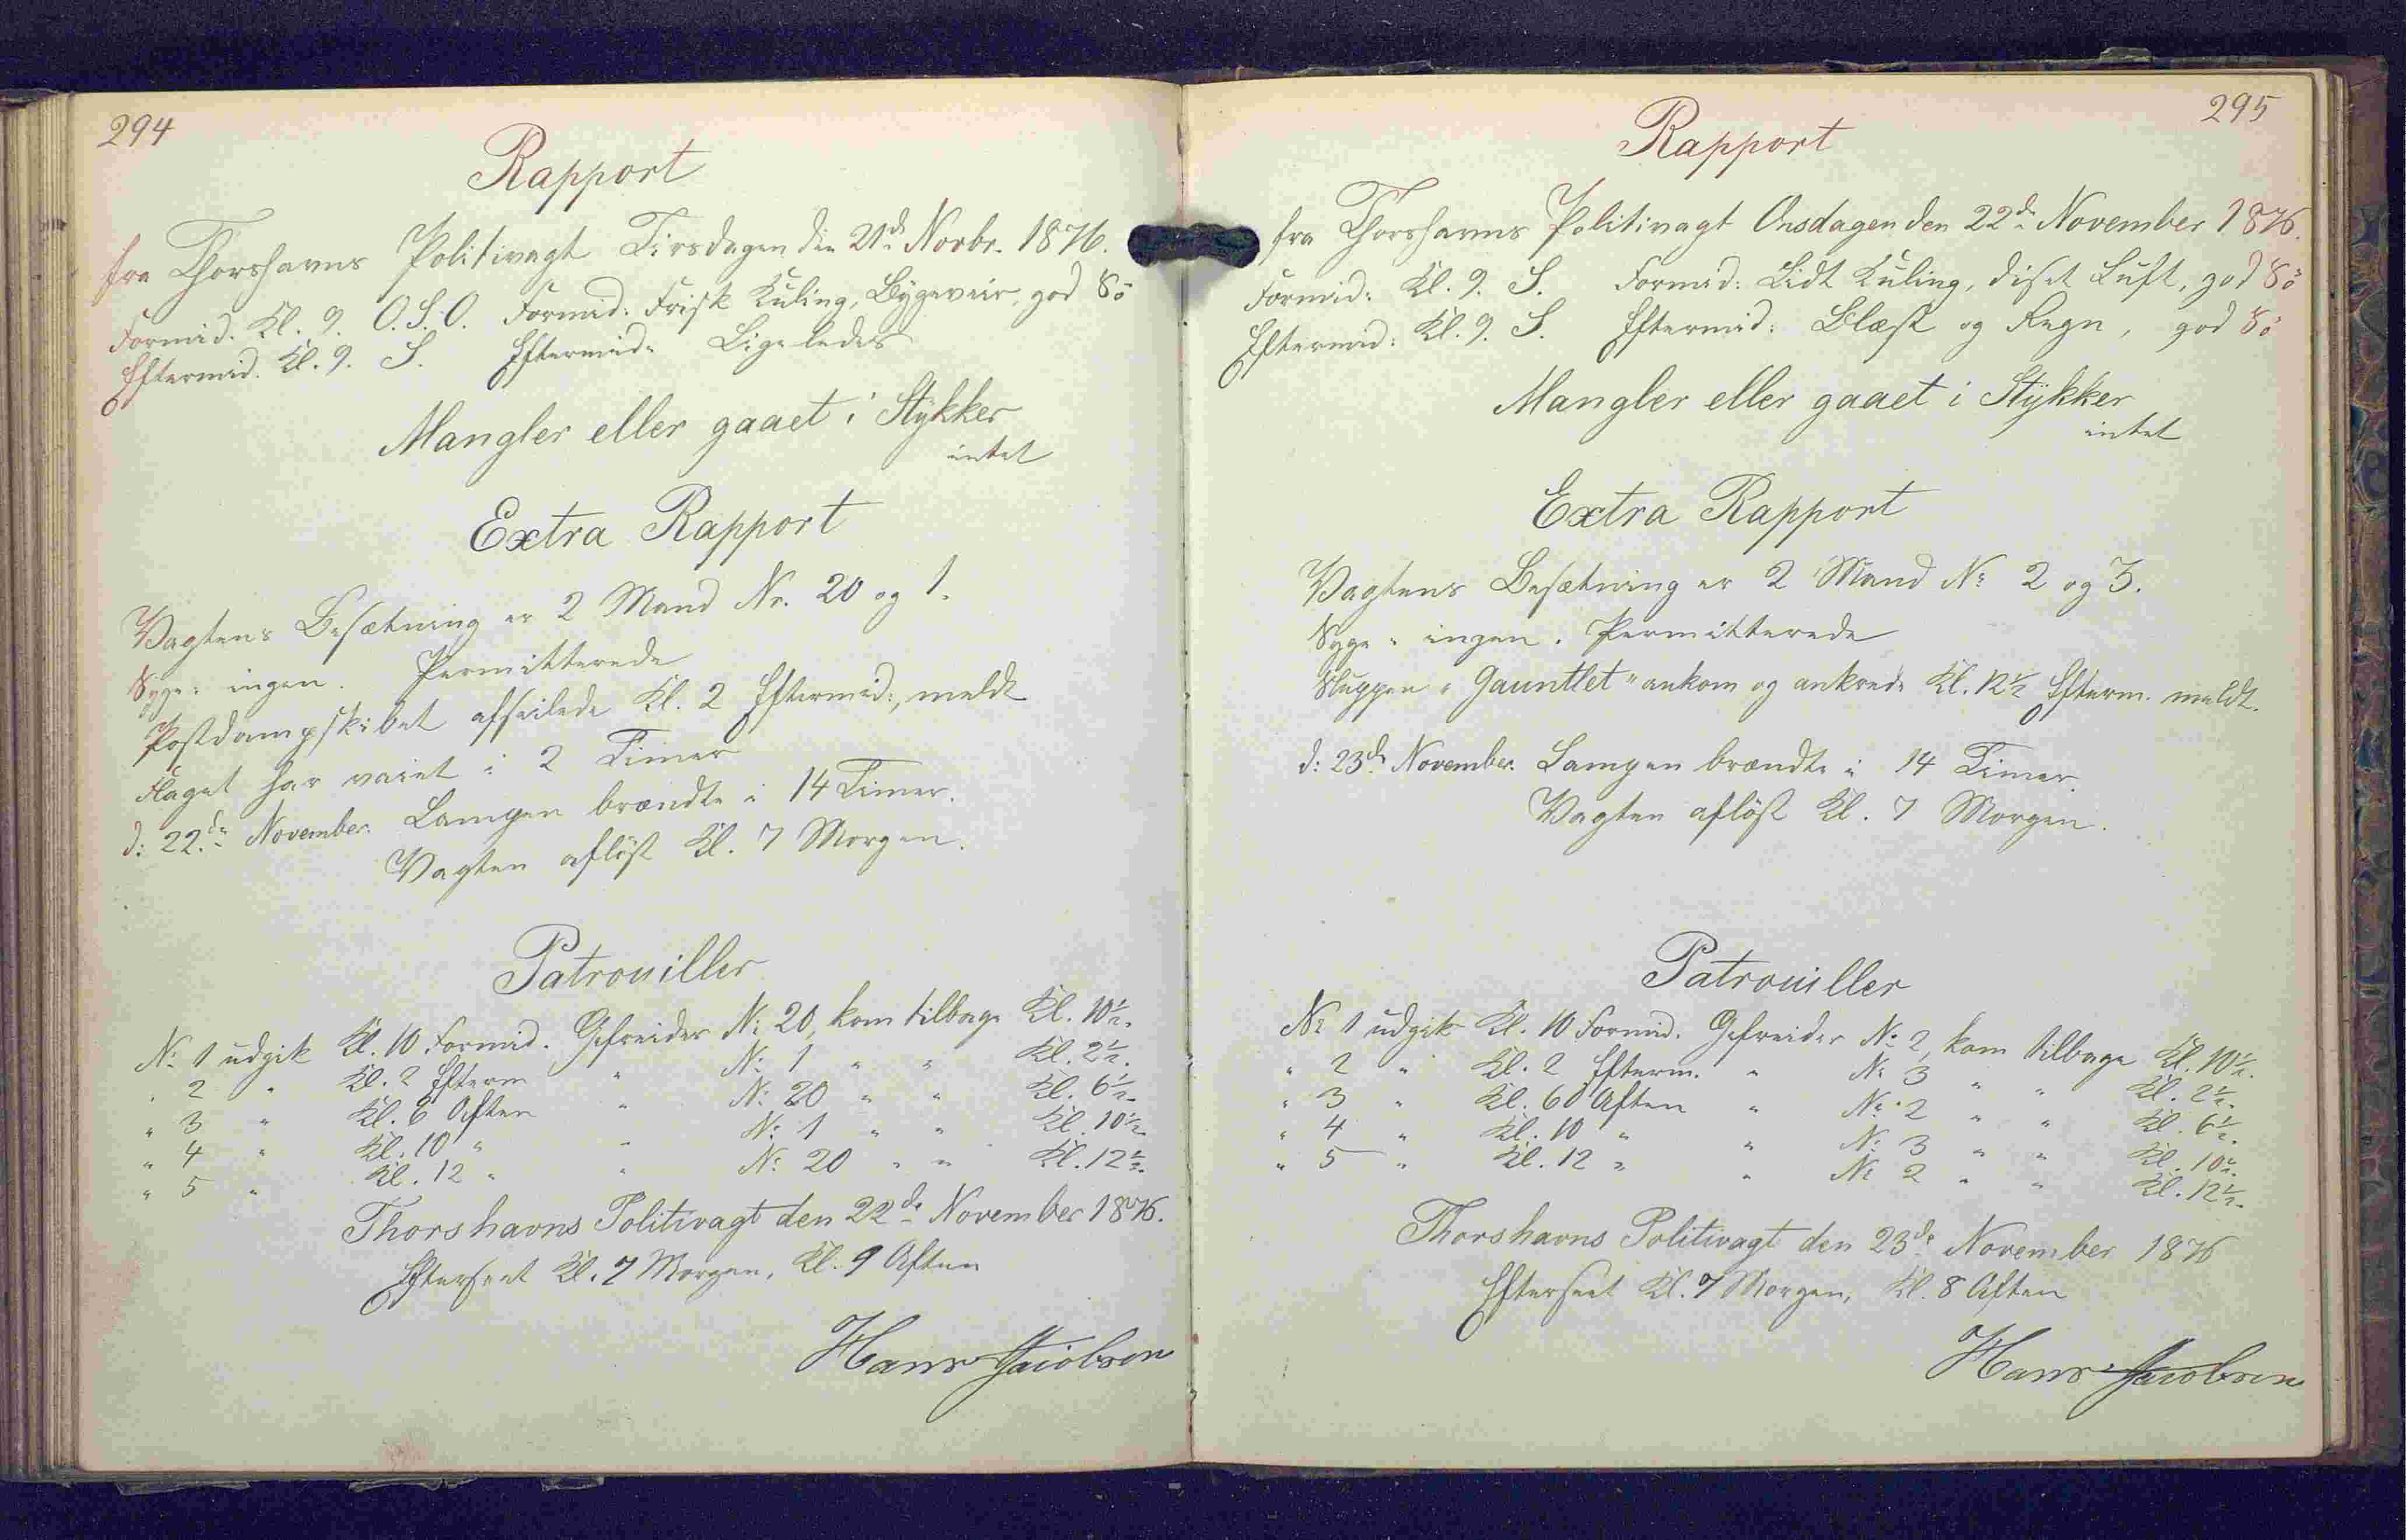 294
Rapport
fra Thorshavns Politivagt Tirsdagen den 21de Novbr. 1876.
Formid. Kl. 9. O.S.O. Formid: Frisk Kuling, Bygeveir, god Sö
Eftermid. Kl. 9. S. Eftermid: Ligeledes
Mangler eller gaaet i Stykker
intet
Extra Rapport
Vagtens Besætning er 2 Mand Nr. 20 og 1.
Syge: ingen. Permitterede
Postdampskibet afseilede Kl. 2 Eftermid:, meldt
Flaget har vaiet i 2 Timer
d: 22de November. Lampen brændte i 14 Timer.
Vagten aflöst Kl. 7 Morgen.
Patrouiller
No 1 udgik Kl. 10 Formid. Gefreider No 20, kom tilbage Kl. 10½.
" 2 " Kl. 2 Efterm " No 1 " " Kl. 2½.
" 3 " Kl. 6 Aften " No 20 " " Kl. 6½.
" 4 " Kl. 10 " " No 1 " " Kl. 10½.
" 5 " Kl. 12 " " No 20 " " Kl. 12½.
Thorshavns Politivagt den 22de November 1876.
Efterseet Kl. 7 Morgen, Kl. 9 Aften
Hans Jacobsen
295
Rapport
fra Thorshavns Politivagt Onsdagen den 22de November 1876.
Formid: Kl. 9. S. Formid: Lidt Kuling, diset Luft, god Sö
Eftermid: Kl. 9. S. Eftermid: Blæst og Regn, god Sö
Mangler eller gaaet i Stykker
intet
Extra Rapport
Vagtens Besætning er 2 Mand No 2 og 3.
Syge: ingen. Permitterede
Sluppen "Gauntlet" ankom og ankrede Kl. 12½ Efterm. meldt.
d: 23de November. Lampen brændte i 14 Timer.
Vagten aflöst Kl. 7 Morgen.
Patrouiller
No 1 udgik Kl. 10 Formid. Gefreider No 2, kom tilbage Kl. 10½.
" 2 " Kl. 2 Efterm. " No 3 " " Kl. 2½.
" 3 " Kl. 6 Aften " No 2 " " Kl. 6½.
" 4 " Kl. 10 " " No 3 " " Kl. 10½.
" 5 " Kl. 12 " " No 2 " " Kl. 12½.
Thorshavns Politivagt den 23de November 1876
Efterseet Kl. 7 Morgen, Kl. 8 Aften
Hans Jacobsen